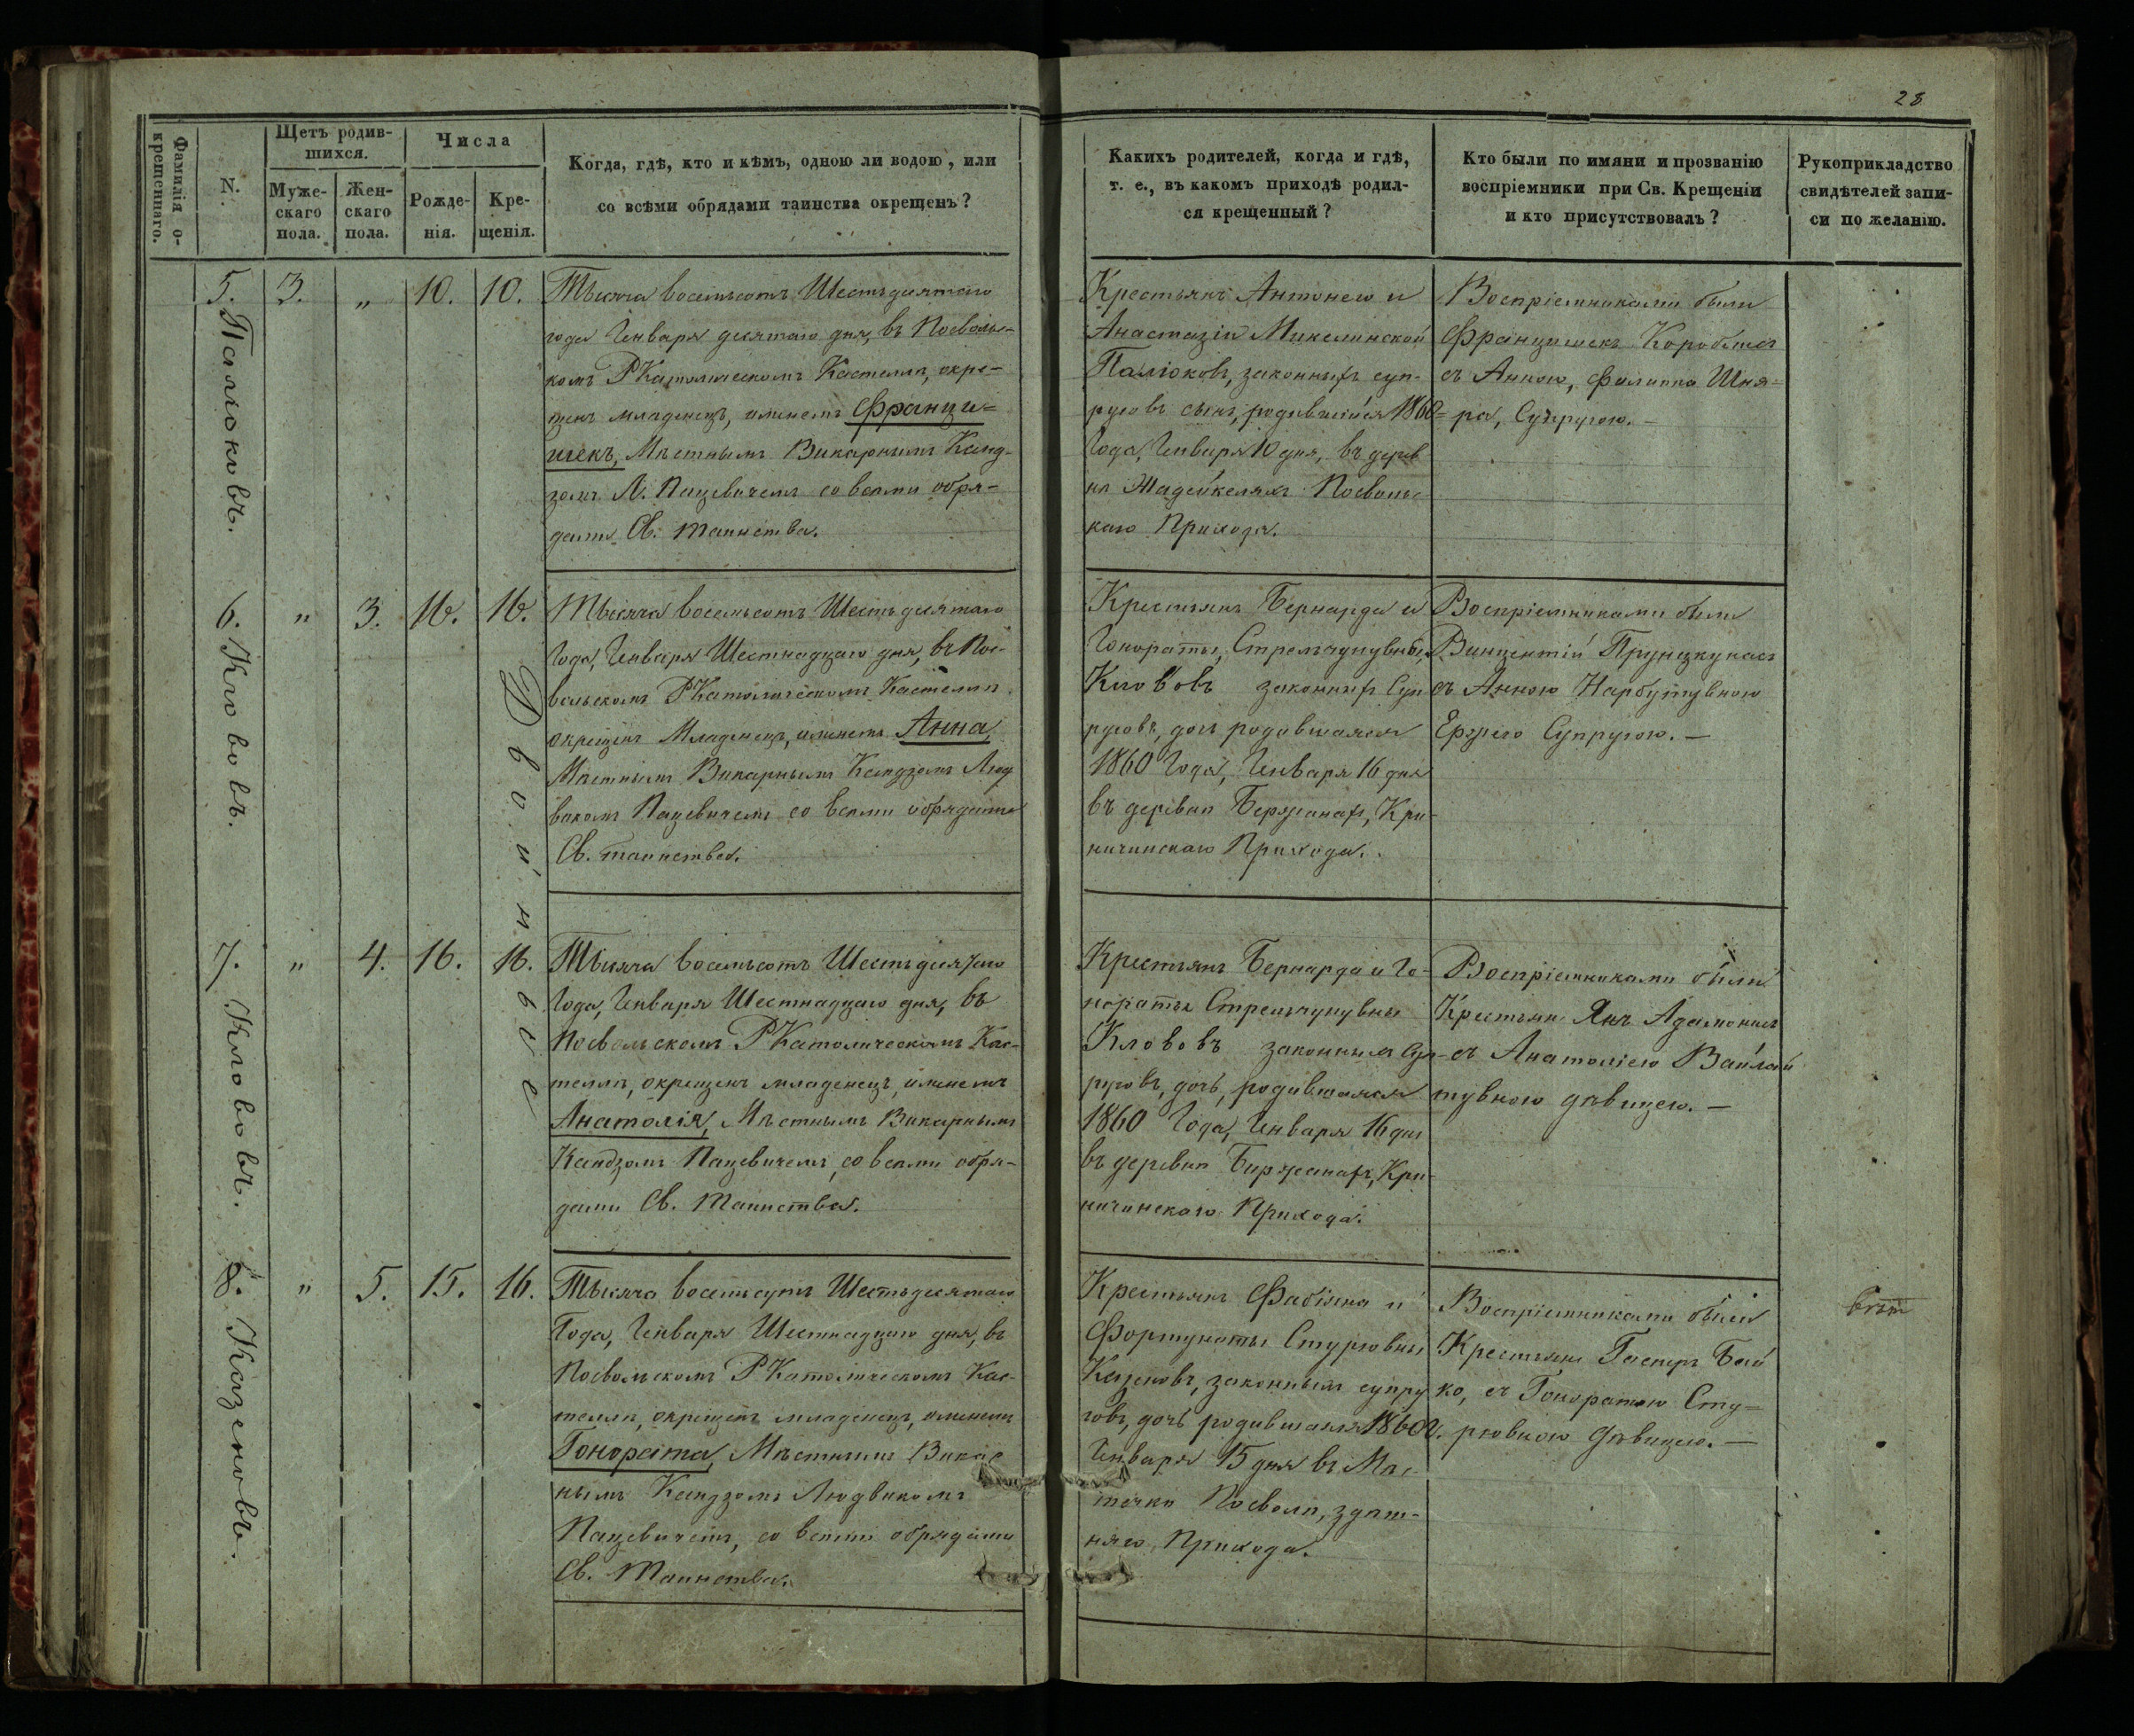 28
Фамилія о-
крещеннаго.
N.
Щетъ родив-
шихся.
Муже-
скаго
пола.
Жен-
скаго
пола.
Числа
Рожде-
нія.
Кре-
щенія.
Когда, гдѣ, кто и кѣмъ, одною ли водою, или
со всѣми обрядами таинства окрещенъ?
Какихъ родителей, когда и гдѣ,
т. е., въ какомъ приходѣ родил-
ся крещенный?
Кто были по имяни и прозванію
воспріемники при Св. Крещеніи
и кто присутствовалъ?
Рукоприкладство
свидѣтелей запи-
си по желанію.
5. Палюковъ.
3.
„
10.
10.
Тысяча восемьсотъ Шестьдесятаго
года Генваря десятаго дня, въ Посволь-
комъ РКатолическомъ Костелѣ, окре-
щенъ младенецъ, именемъ Франци-
шекъ, Мѣстнымъ Викарнымъ Ксенд-
зомъ Л. Пацевичемъ со всѣми обря-
дами Св. таинства.
Крестьянъ Антонего и
Анастазіи Микелинской
Палюковъ, законныхъ суп-
руговъ сынъ, родившійся 1860
Года, Генваря 10 дня, въ дерев
нѣ Жадейкеляхъ Посволь-
каго Прихода.
Воспріемниками были
Францишекъ Короблисъ
съ Анною, Филиппа Шня-
ра, Супругою. —
6. Клововъ.
„
3.
16.
16.
Двойнвое
Тысяча восемьсотъ Шестьдесятаго
Года, Генваря Шестнадцаго дня, въ Пос-
вольскомъ РКатолическомъ Костелѣ
окрещенъ Младенецъ, именемъ Анна
Мѣстнымъ Викарнымъ Ксендзомъ Люд
викомъ Пацевичемъ со всѣми обрядами
Св. таинства.
Крестьянъ Бернарда и
Гонораты, Стрельчунувны,
Клововъ законныхъ Суп
руговъ, дочь родившаяся
1860 Года, Генваря 16 дня
въ деревнѣ Бержанахъ, Кри-
ничинскаго Прихода.
Воспріемниками были
Винцентій Прунцкунасъ
съ Анною Нарбутувною
Ержего Супругою. —
7. Клововъ.
„
4.
16.
16.
Тысяча восемьсотъ Шестьдесятаго
Года, Генваря Шестнадцаго дня, въ
Посвольскомъ РКатолическомъ Кос-
телѣ, окрещенъ младенецъ, именемъ
Анатолія, Мѣстнымъ Викарнымъ
Ксендзомъ Пацевичемъ, со всѣми обря-
дами Св. Таинства.
Крестьянъ Бернарда и Го-
нораты Стрельчунувны
Клововъ законныхъ Суп-
руговъ, дочь, родившаяся
1860 Года, Генваря 16 дня
въ деревнѣ Биржанахъ, Кри-
ничинскаго Прихода.
Воспріемниками были
Крестьяне Янъ Адамонисъ
съ Анатоліею Вайлой
тувною дѣвицею. —
8. Казеновъ.
„
5.
15.
16.
Тысяча восемьсотъ Шестьдесятаго
Года, Генваря Шестнадцаго дня, въ
Посвольскомъ РКатолическомъ Кос-
телѣ, окрещенъ младенецъ, именемъ
Гонората, Мѣстнымъ Викар
нымъ Ксендзомъ Людвикомъ
Пацевичемъ, со всѣми обрядами
Св. Таинства.
Крестьянъ Фабіяна и
Фортунаты Стурювны
Казеновъ, законныхъ супру
говъ, дочь родившаяся 1860 г.
Генваря 15 дня въ Мѣс-
течкѣ Посволѣ, здѣш-
няго Прихода.
Воспріемниками были
Крестьяне Гасперъ Бай
ко, съ Гоноратою Сту-
рювною Дѣвицею. —